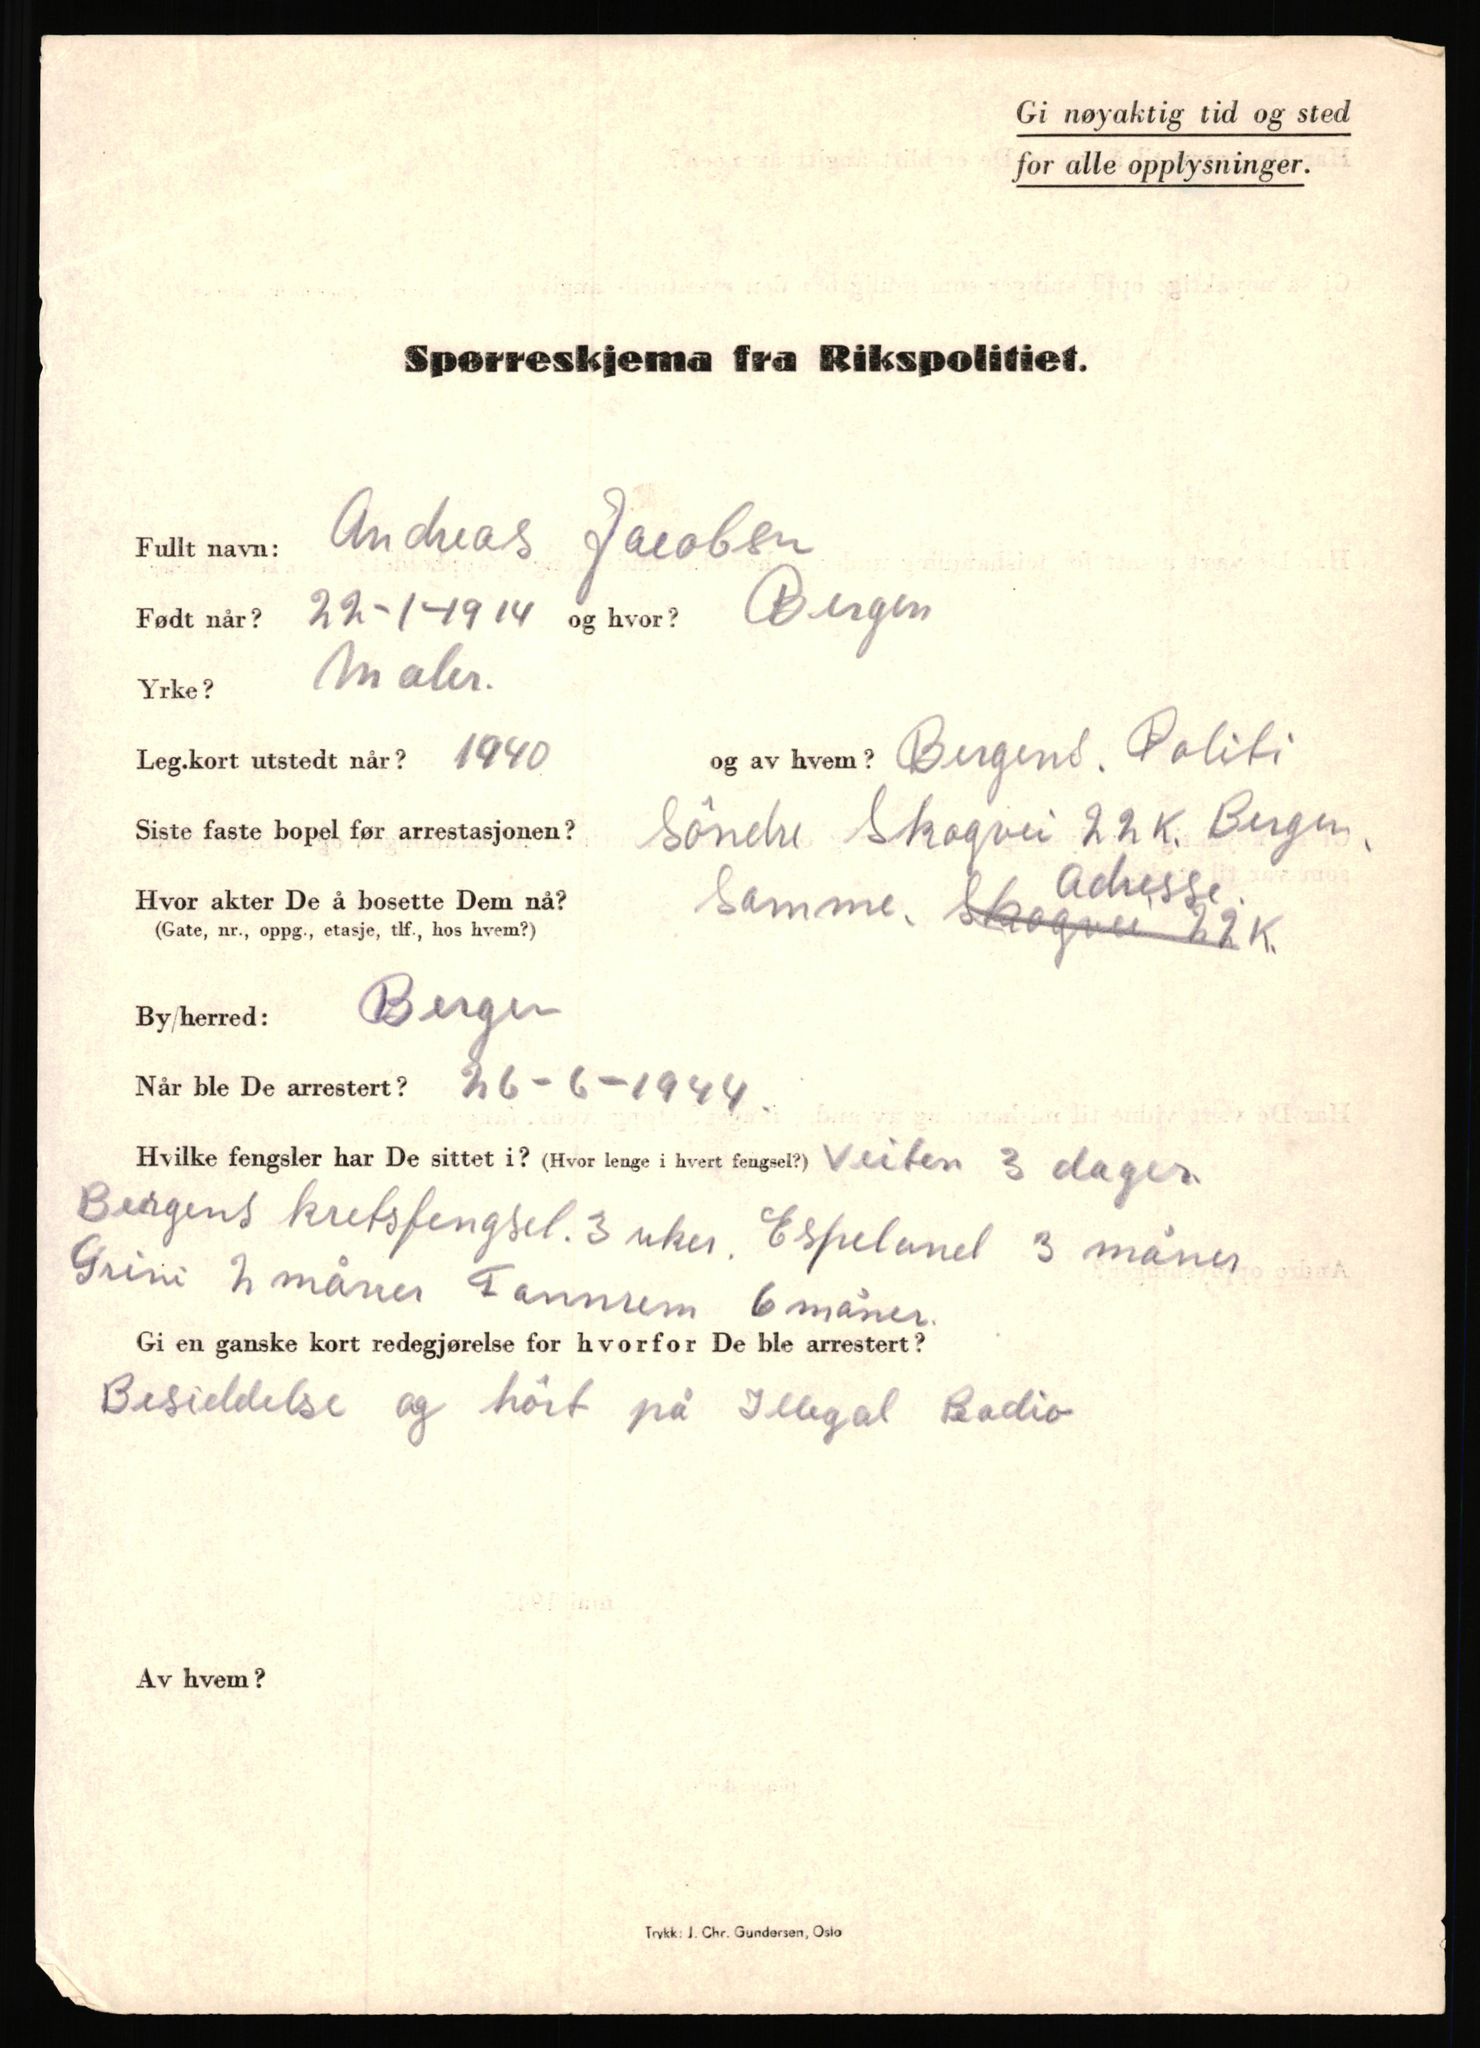 Gi nøyaktig tid og sted
for alle opplysninger.
Spørreskjema fra Rikspolitiet.
Fullt navn: Andreas Jacobsen
Født når? 22-1-1914 og hvor? Bergen
Yrke? Maler.
Leg.kort utstedt når? 1940 og av hvem? Bergens. Politi
Siste faste bopel før arrestasjonen? Söndre Skogvei 22K. Bergen.
Hvor akter De å bosette Dem nå? Samme. Adresse.
Skogvei 22K.
(Gate, nr., oppg., etasje, tlf., hos hvem?)
By/herred: Bergen
Når ble De arrestert? 26-6-1944.
Hvilke fengsler har De sittet i? (Hvor lenge i hvert fengsel?) Veiten 3 dager.
Bergens kretsfengsel. 3 uker. Espeland 3 måner
Grini 2 måner Fannrem 6 måner.
Gi en ganske kort redegjørelse for hvorfor De ble arrestert?
Besiddelse og hört på Illegal Radio
Av hvem?
Trykk: J. Chr. Gundersen, Oslo